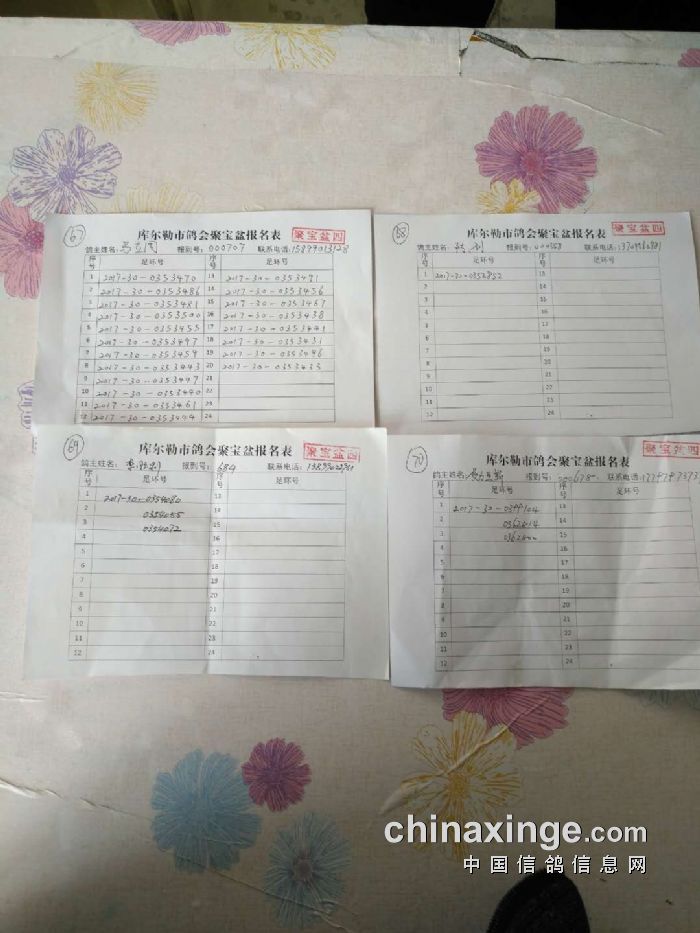 67
库尔勒市鸽会聚宝盆报名表
聚宝盆四
鸽主姓名: 报到号: 000707 联系电话:
序号 足环号 序号 足环号
1 2017-30-0353470 13 2017-30-0353491
2 2017-30-0353486 14 2017-30-0353456
3 2017-30-0353481 15 2017-30-0353467
4 2017-30-0353500 16 2017-30-0353438
5 2017-30-0353455 17 2017-30-0353441
6 2017-30-0353497 18 2017-30-0353431
7 2017-30-0353459 19 2017-30-0353446
8 2017-30-0353443 20 2017-30-0353433
9 2017-30-0353447 21
10 2017-30-0353440 22
11 2017-30-0353461 23
12 2017-30-0353444 24
68
库尔勒市鸽会聚宝盆报名表
聚宝盆四
鸽主姓名: 报到号: 联系电话:
序号 足环号 序号 足环号
1 2017-30-0352852 13
2 14
3 15
4 16
5 17
6 18
7 19
8 20
9 21
10 22
11 23
12 24
69
库尔勒市鸽会聚宝盆报名表
聚宝盆四
鸽主姓名: 报到号: 684 联系电话:
序号 足环号 序号 足环号
1 2017-30-0354080 13
2 0354055 14
3 0354072 15
4 16
5 17
6 18
7 19
8 20
9 21
10 22
11 23
12 24
70
库尔勒市鸽会聚宝盆报名表
聚宝盆四
鸽主姓名: 报到号: 000675 联系电话:
序号 足环号 序号 足环号
1 2017-30-0399104 13
2 0362614 14
3 15
4 16
5 17
6 18
7 19
8 20
9 21
10 22
11 23
12 24
chinaxinge.com
中国信鸽信息网